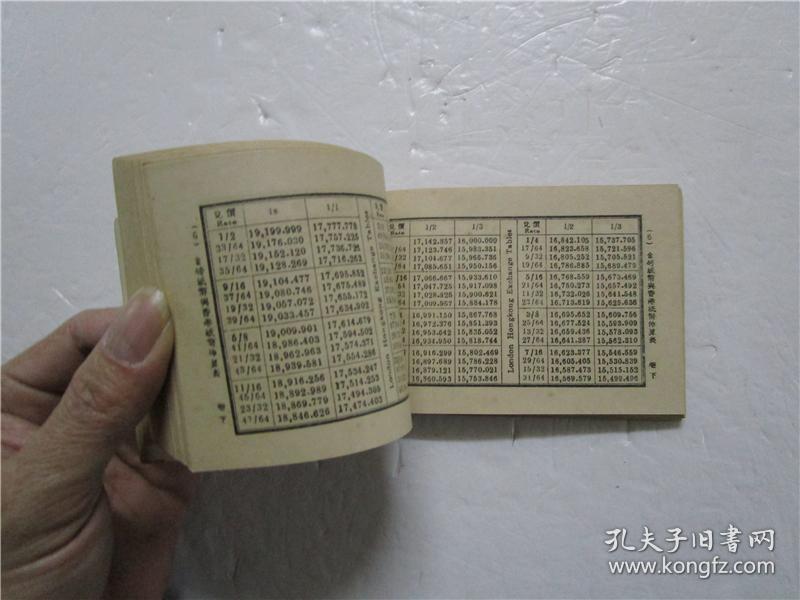 兌價 Rate 1s 1/1
1/2 19,199.999 17,777.778
33/64 19,176.030 17,757.225
17/32 19,152.120 17,736.721
35/64 19,128.269 17,716.263
9/16 19,104.477 17,695.852
37/64 19,080.746 17,675.489
19/32 19,057.072 17,655.172
39/64 19,033.457 17,634.902
5/8 19,009.901 17,614.679
41/64 18,986.403 17,594.502
21/32 18,962.963 17,574.371
43/64 18,939.581 17,554.286
11/16 18,916.256 17,534.247
45/64 18,892.989 17,514.253
23/32 18,869.779 17,494.305
47/64 18,846.626 17,474.403
卷下
1/2 1/3
17,142.857 16,000.000
17,123.746 15,983.351
17,104.677 15,966.736
17,085.651 15,950.156
17,066.667 15,933.610
17,047.725 15,917.098
17,028.825 15,900.621
17,009.967 15,884.178
16,991.150 15,867.768
16,972.376 15,851.393
16,953.642 15,835.051
16,934.950 15,818.744
16,916.299 15,802.469
16,897.689 15,786.228
16,879.121 15,770.021
16,860.593 15,753.846
London Hongkong Exchange Tables
兌價 Rate 1/2 1/3
1/4 16,842.105 15,737.705
17/64 16,823.658 15,721.596
9/32 16,805.252 15,705.521
19/64 16,786.885 15,689.479
5/16 16,768.559 15,673.469
21/64 16,750.273 15,657.492
11/32 16,732.026 15,641.548
23/64 16,713.819 15,625.636
3/8 16,695.652 15,609.756
25/64 16,677.524 15,593.909
13/32 16,659.436 15,578.093
27/64 16,641.387 15,562.310
7/16 16,623.377 15,546.559
29/64 16,605.405 15,530.839
15/32 16,587.473 15,515.152
31/64 16,569.579 15,499.496
(6)
卷下
孔夫子旧书网
www.kongfz.com